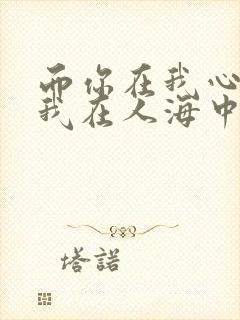 而你在我心
我在人海中
塔諾